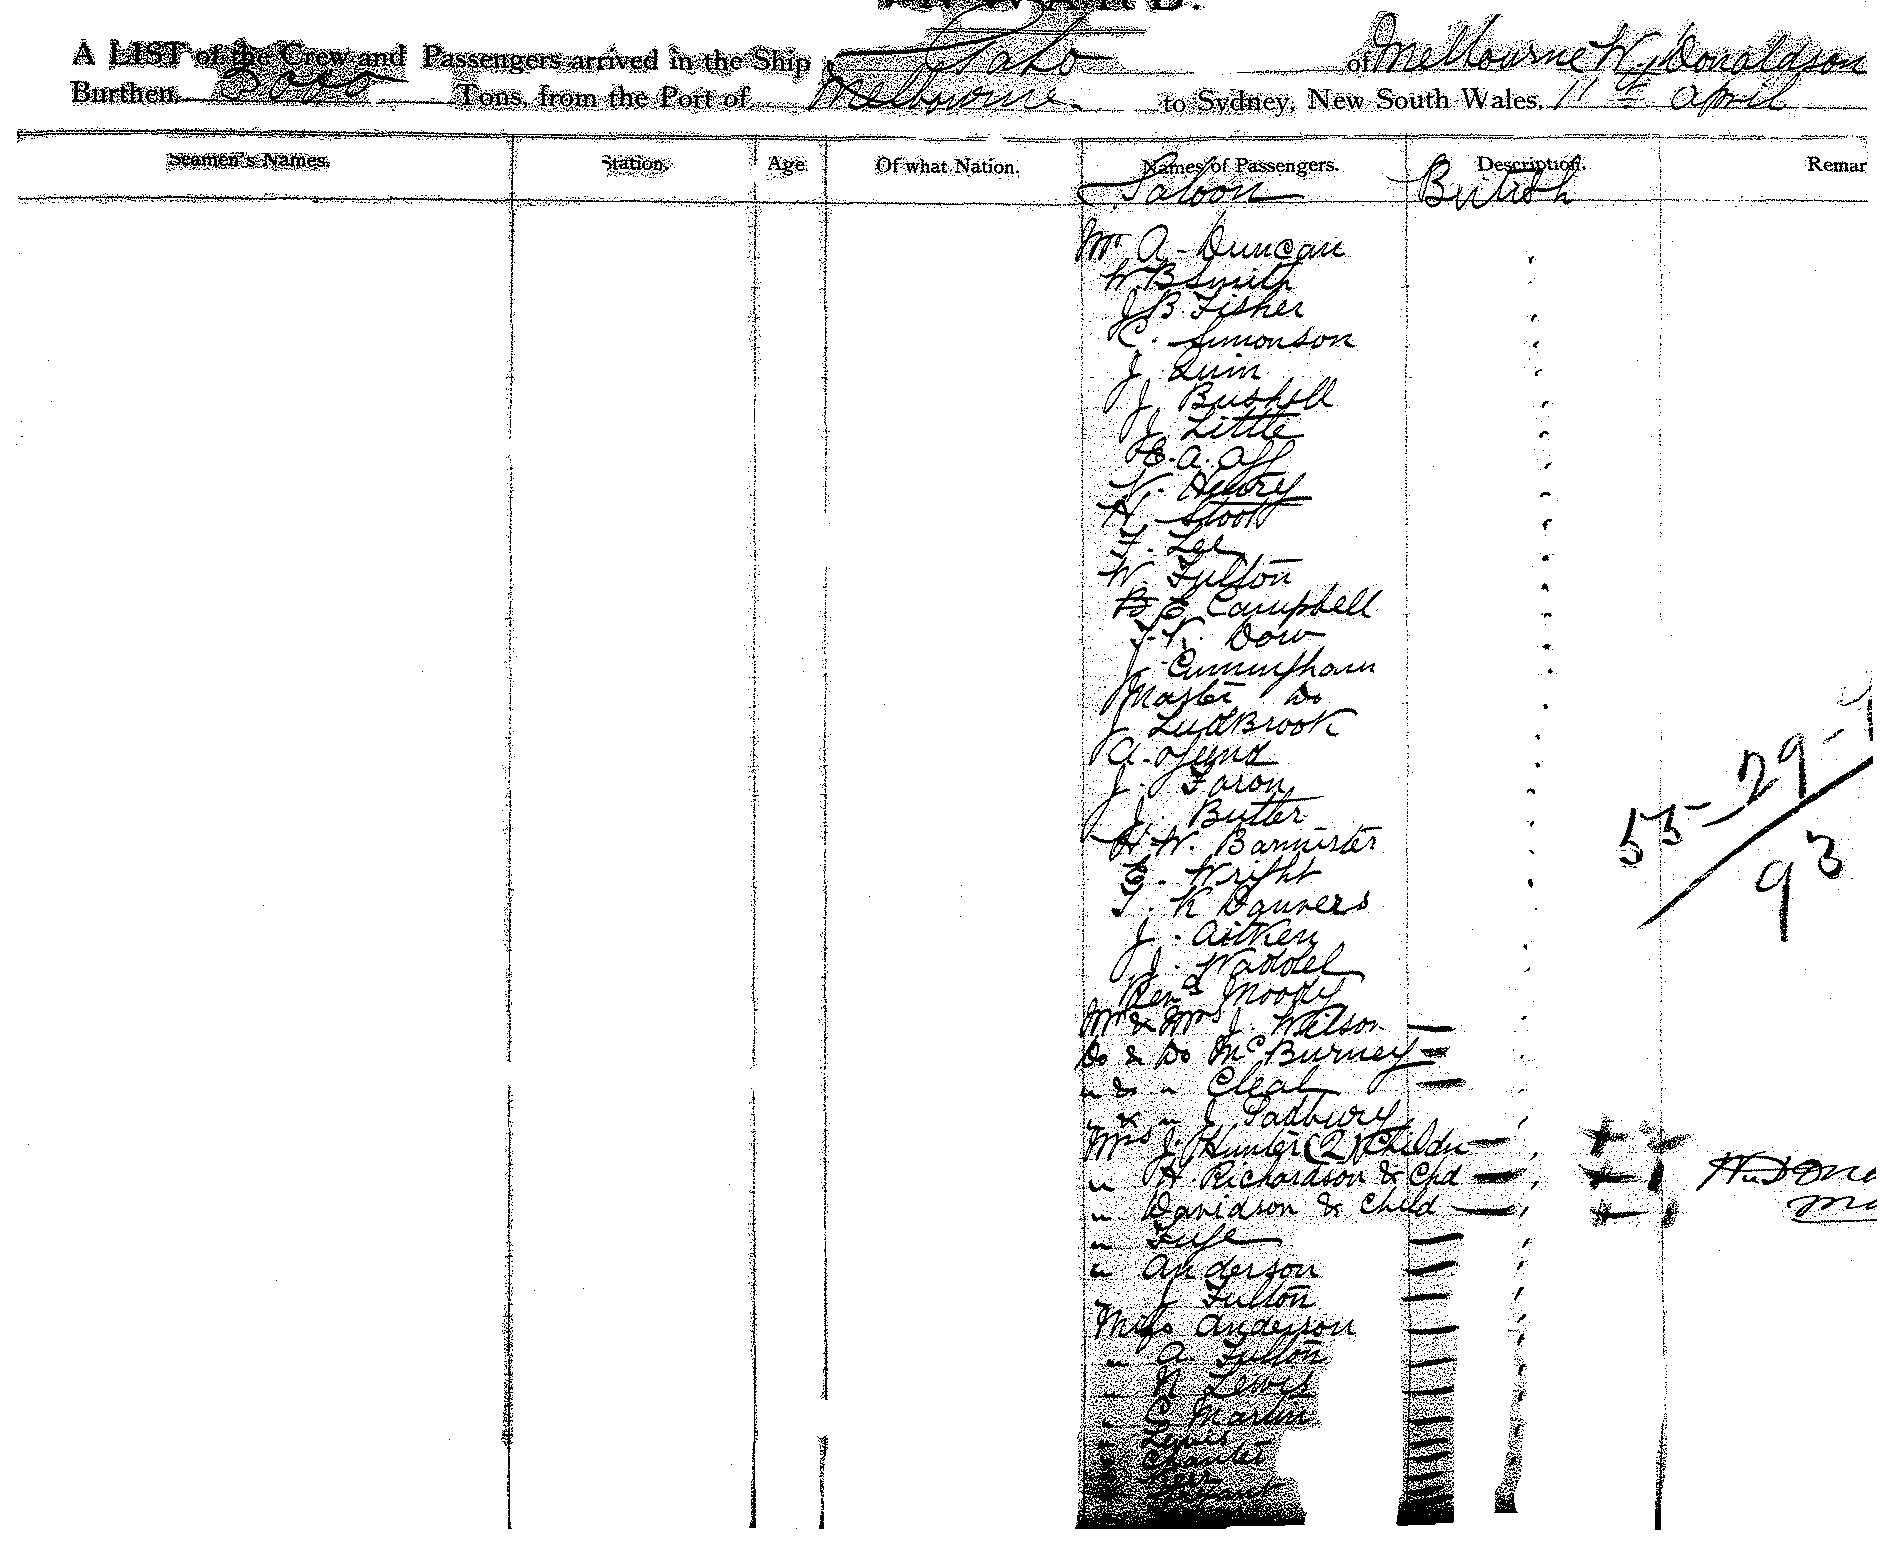 A LIST of the Crew and Passengers arrived in the Ship of Melbourne W. Donaldson
Burthen 3000 Tons, from the Port of Melbourne to Sydney, New South Wales, 11th April
Seamen's Names. Station. Age Of what Nation. Names of Passengers. Description. Remar
Saloon British
Mr A. Duncan
W. B Smith
J. B. Fisher
C. Simonson
J. Quin
J. Bushell
J. Little
E. A.
Henry
H.
F. Lee
W. Fulton
B. E. Campbell
Dow
J. Cunningham
Master Do
J. LudBrook
A.
J. Faron
J. Butler
H. W. Bannister
E. Wright
K Danvers
J. Aitken
J. Waddel
Revd Moody
Mr & Mrs J. Wilson
Do & Do McBurney
" & " Cleal
" & " J. Padbury
Mrs J. Hunter (2) Childn
" H. Richardson & Chd
" Davidson & Child
"
" Anderson
" J Fulton
Miss Anderson
" A. Fulton
" N Lewis
" Martin
" Lewis
55 - 29 - 9
93